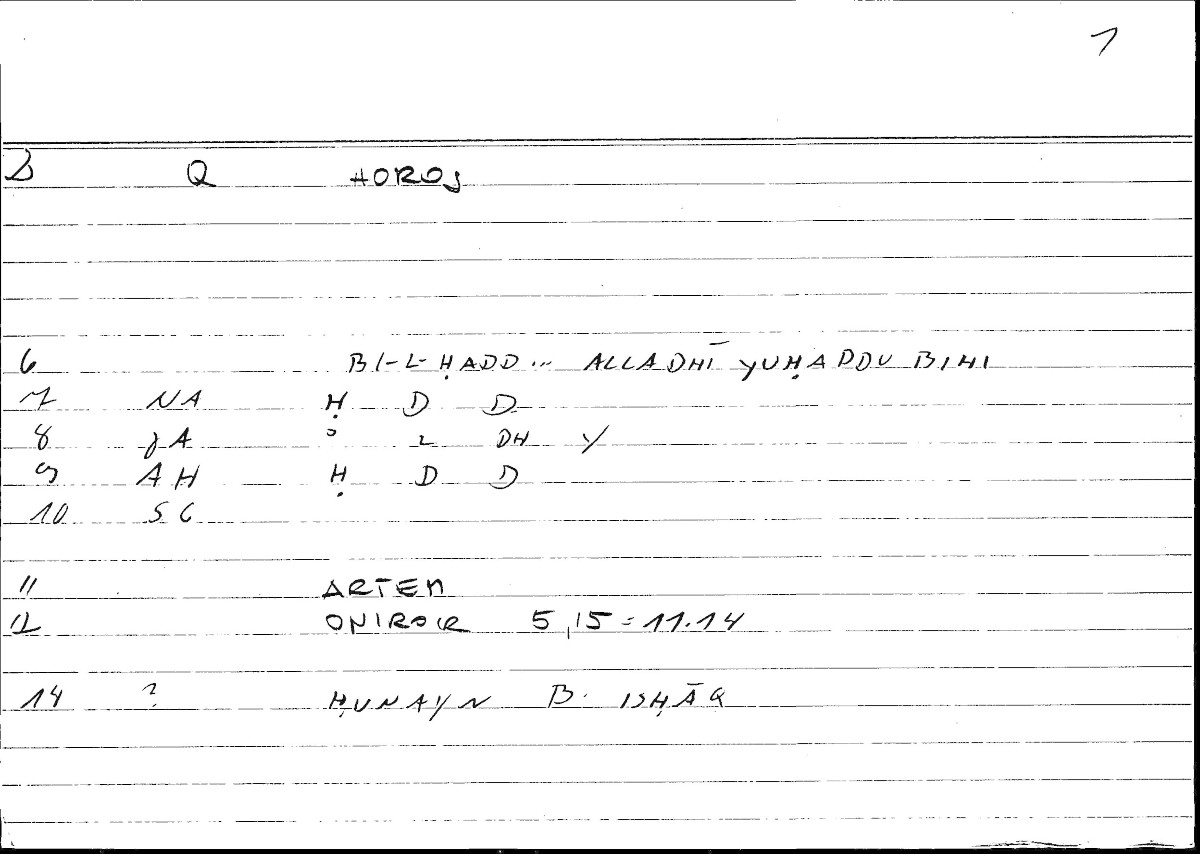 1
2 Q HOROS
6 BI-L-ḤADD... ALLADHĪ YUḤADDU BIHI
7 NA Ḥ D D
8 JA L DH Y
9 AH Ḥ D D
10 SC
11 ARTEM
12 ONIROCR 5,15 = 11.14
14 ? ḤUNAYN B. ISḤĀQ